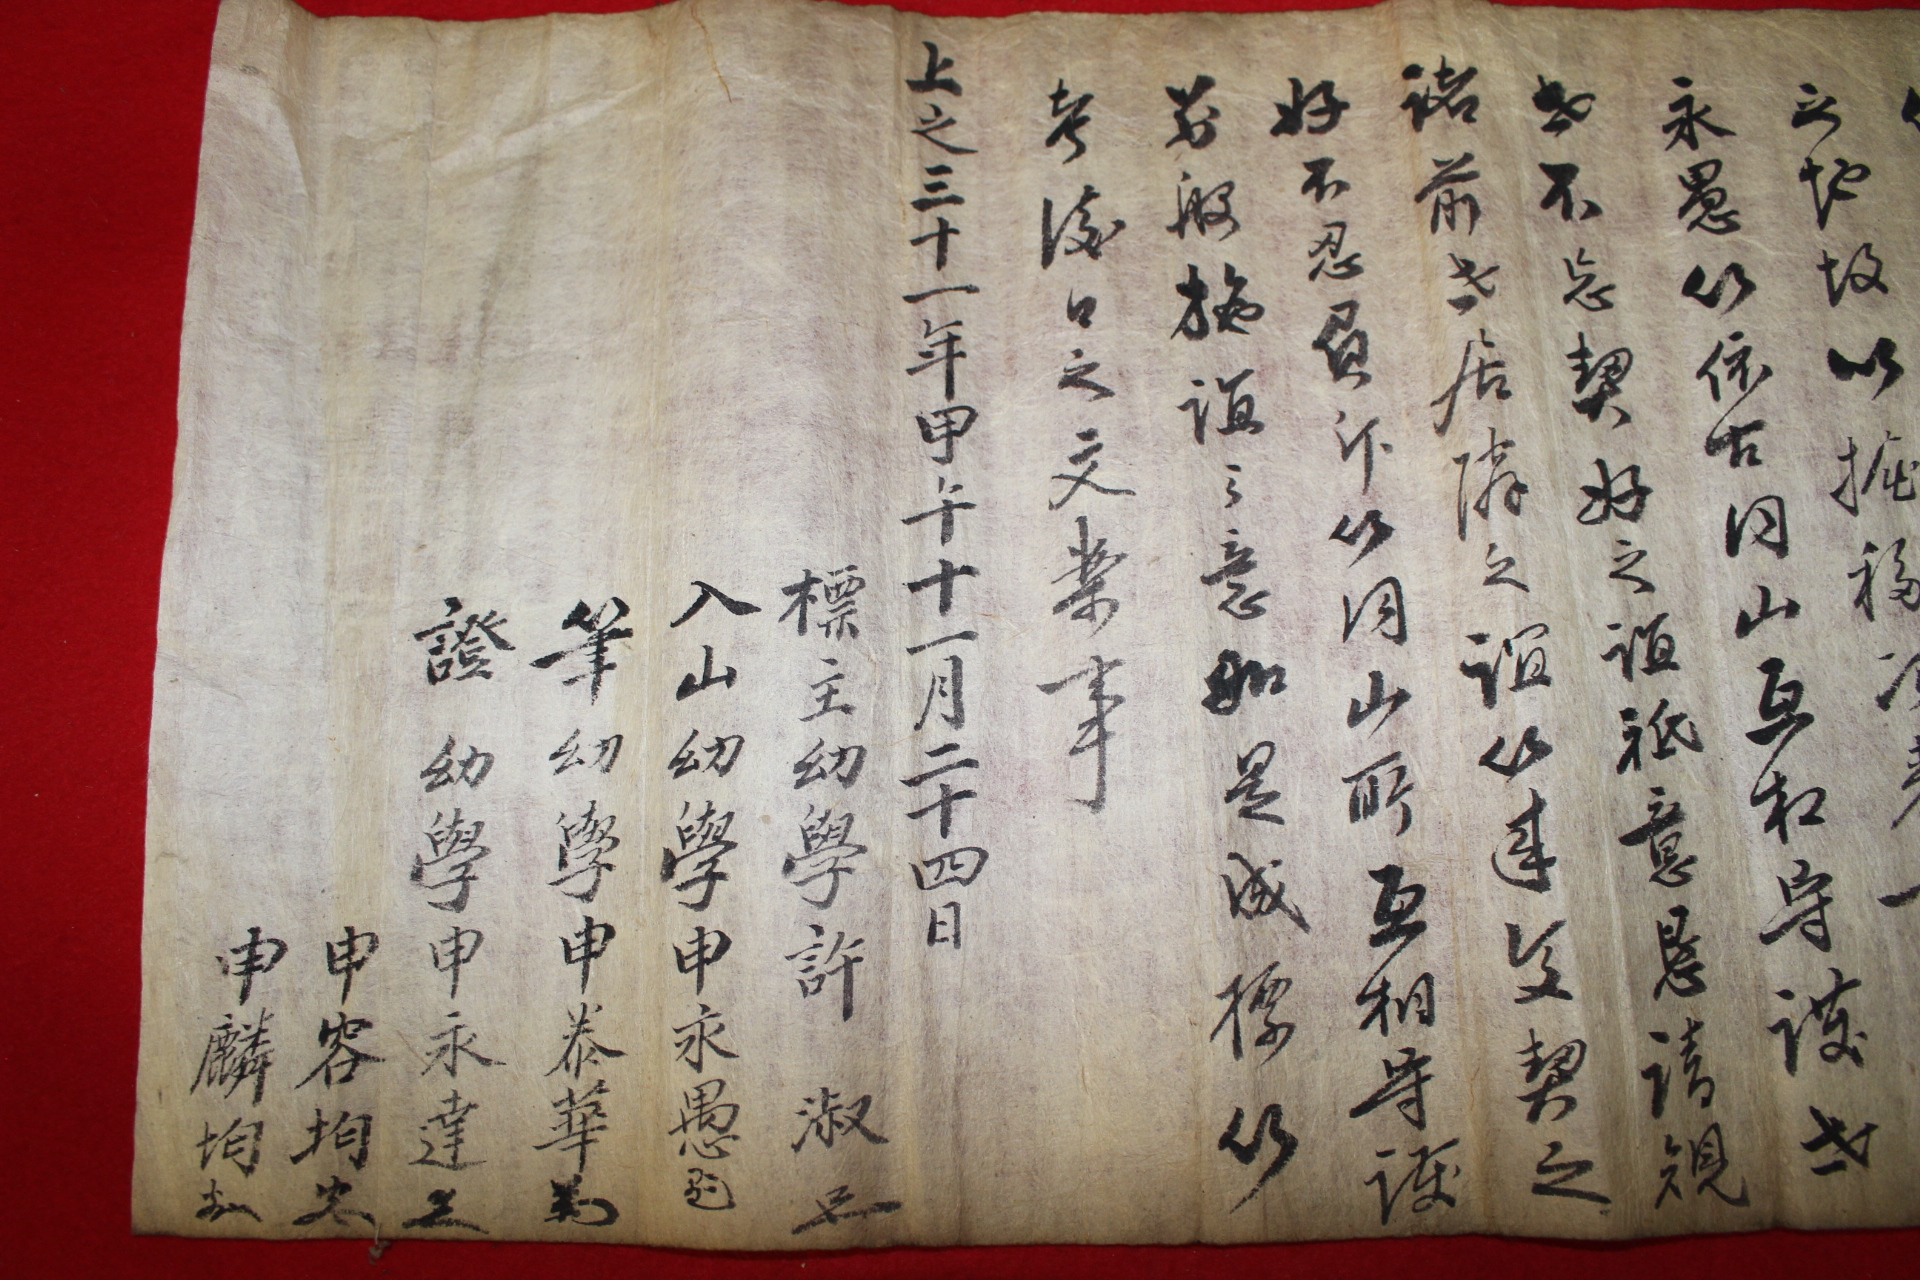 之地故以掘移
永愚以依古同山互相守護世
世不忘契好之誼祗意恳請視
諸前世居隣之誼以年父契之
好不忍負沂以同山所互相守護
誼之意如是成標以
考後日之文案事
上之三十一年甲午十一月二十四日
標主幼學許淑
入山幼學申永愚
筆幼學申泰華
證幼學申永達
申容均
申麟均